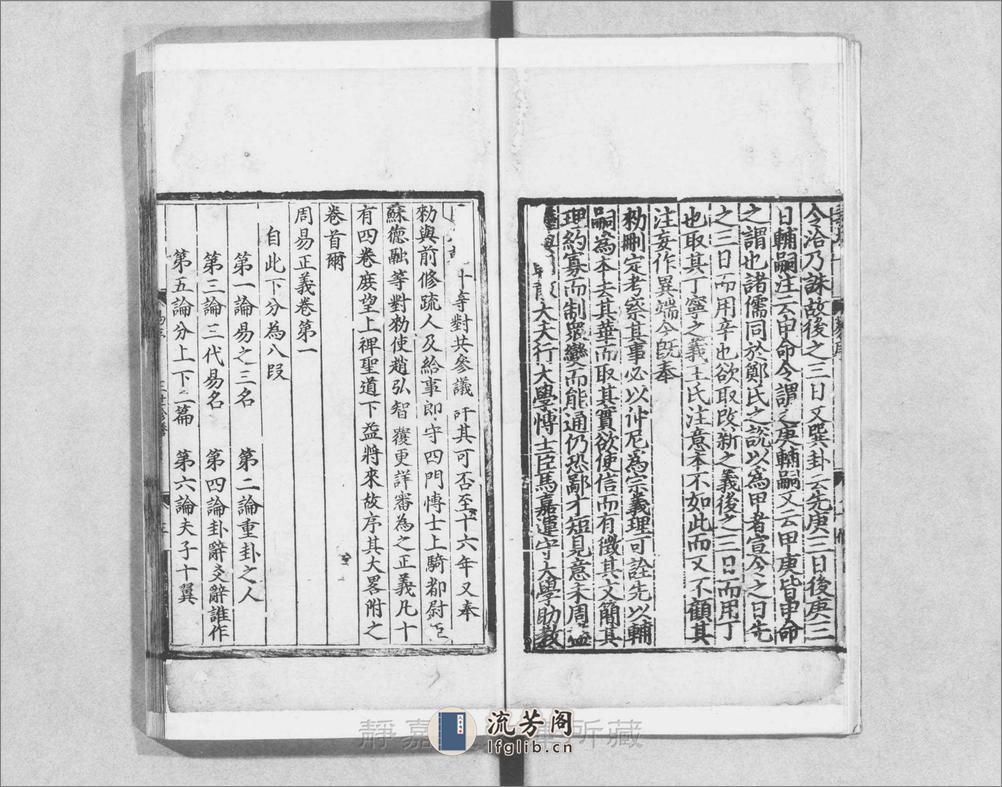 令洽乃誅故後之三日又巽卦云先庚三日後庚三
日輔嗣注云申命令謂之庚輔嗣又云甲庚皆申命
之謂也諸儒同於鄭氏之說以為甲者宣令之日先
之三日而用辛也欲取改新之義後之三日而用丁
也取其丁寧之義王氏注意本不如此而又不顧其
注妄作異端今既奉
勑刪定考察其事必以仲尼為宗義理可詮先以輔
嗣為本去其華而取其實欲使信而有徵其文簡其
理約寡而制眾變而能通仍恐鄙才短見意未周盡
大夫行大學博士臣馬嘉運守大學助教
等對共參議 其可否至十六年又奉
勑與前修疏人及給事郎守四門博士上騎都尉臣
蘇德融等對勑使趙弘智覆更詳審為之正義凡十
有四卷庶望上裨聖道下益將來故序其大畧附之
卷首爾
周易正義卷第一
自此下分為八段
第一論易之三名 第二論重卦之人
第三論三代易名 第四論卦辭爻辭誰作
第五論分上下二篇 第六論夫子十翼
靜嘉 所藏
流芳阁
lfglib.cn